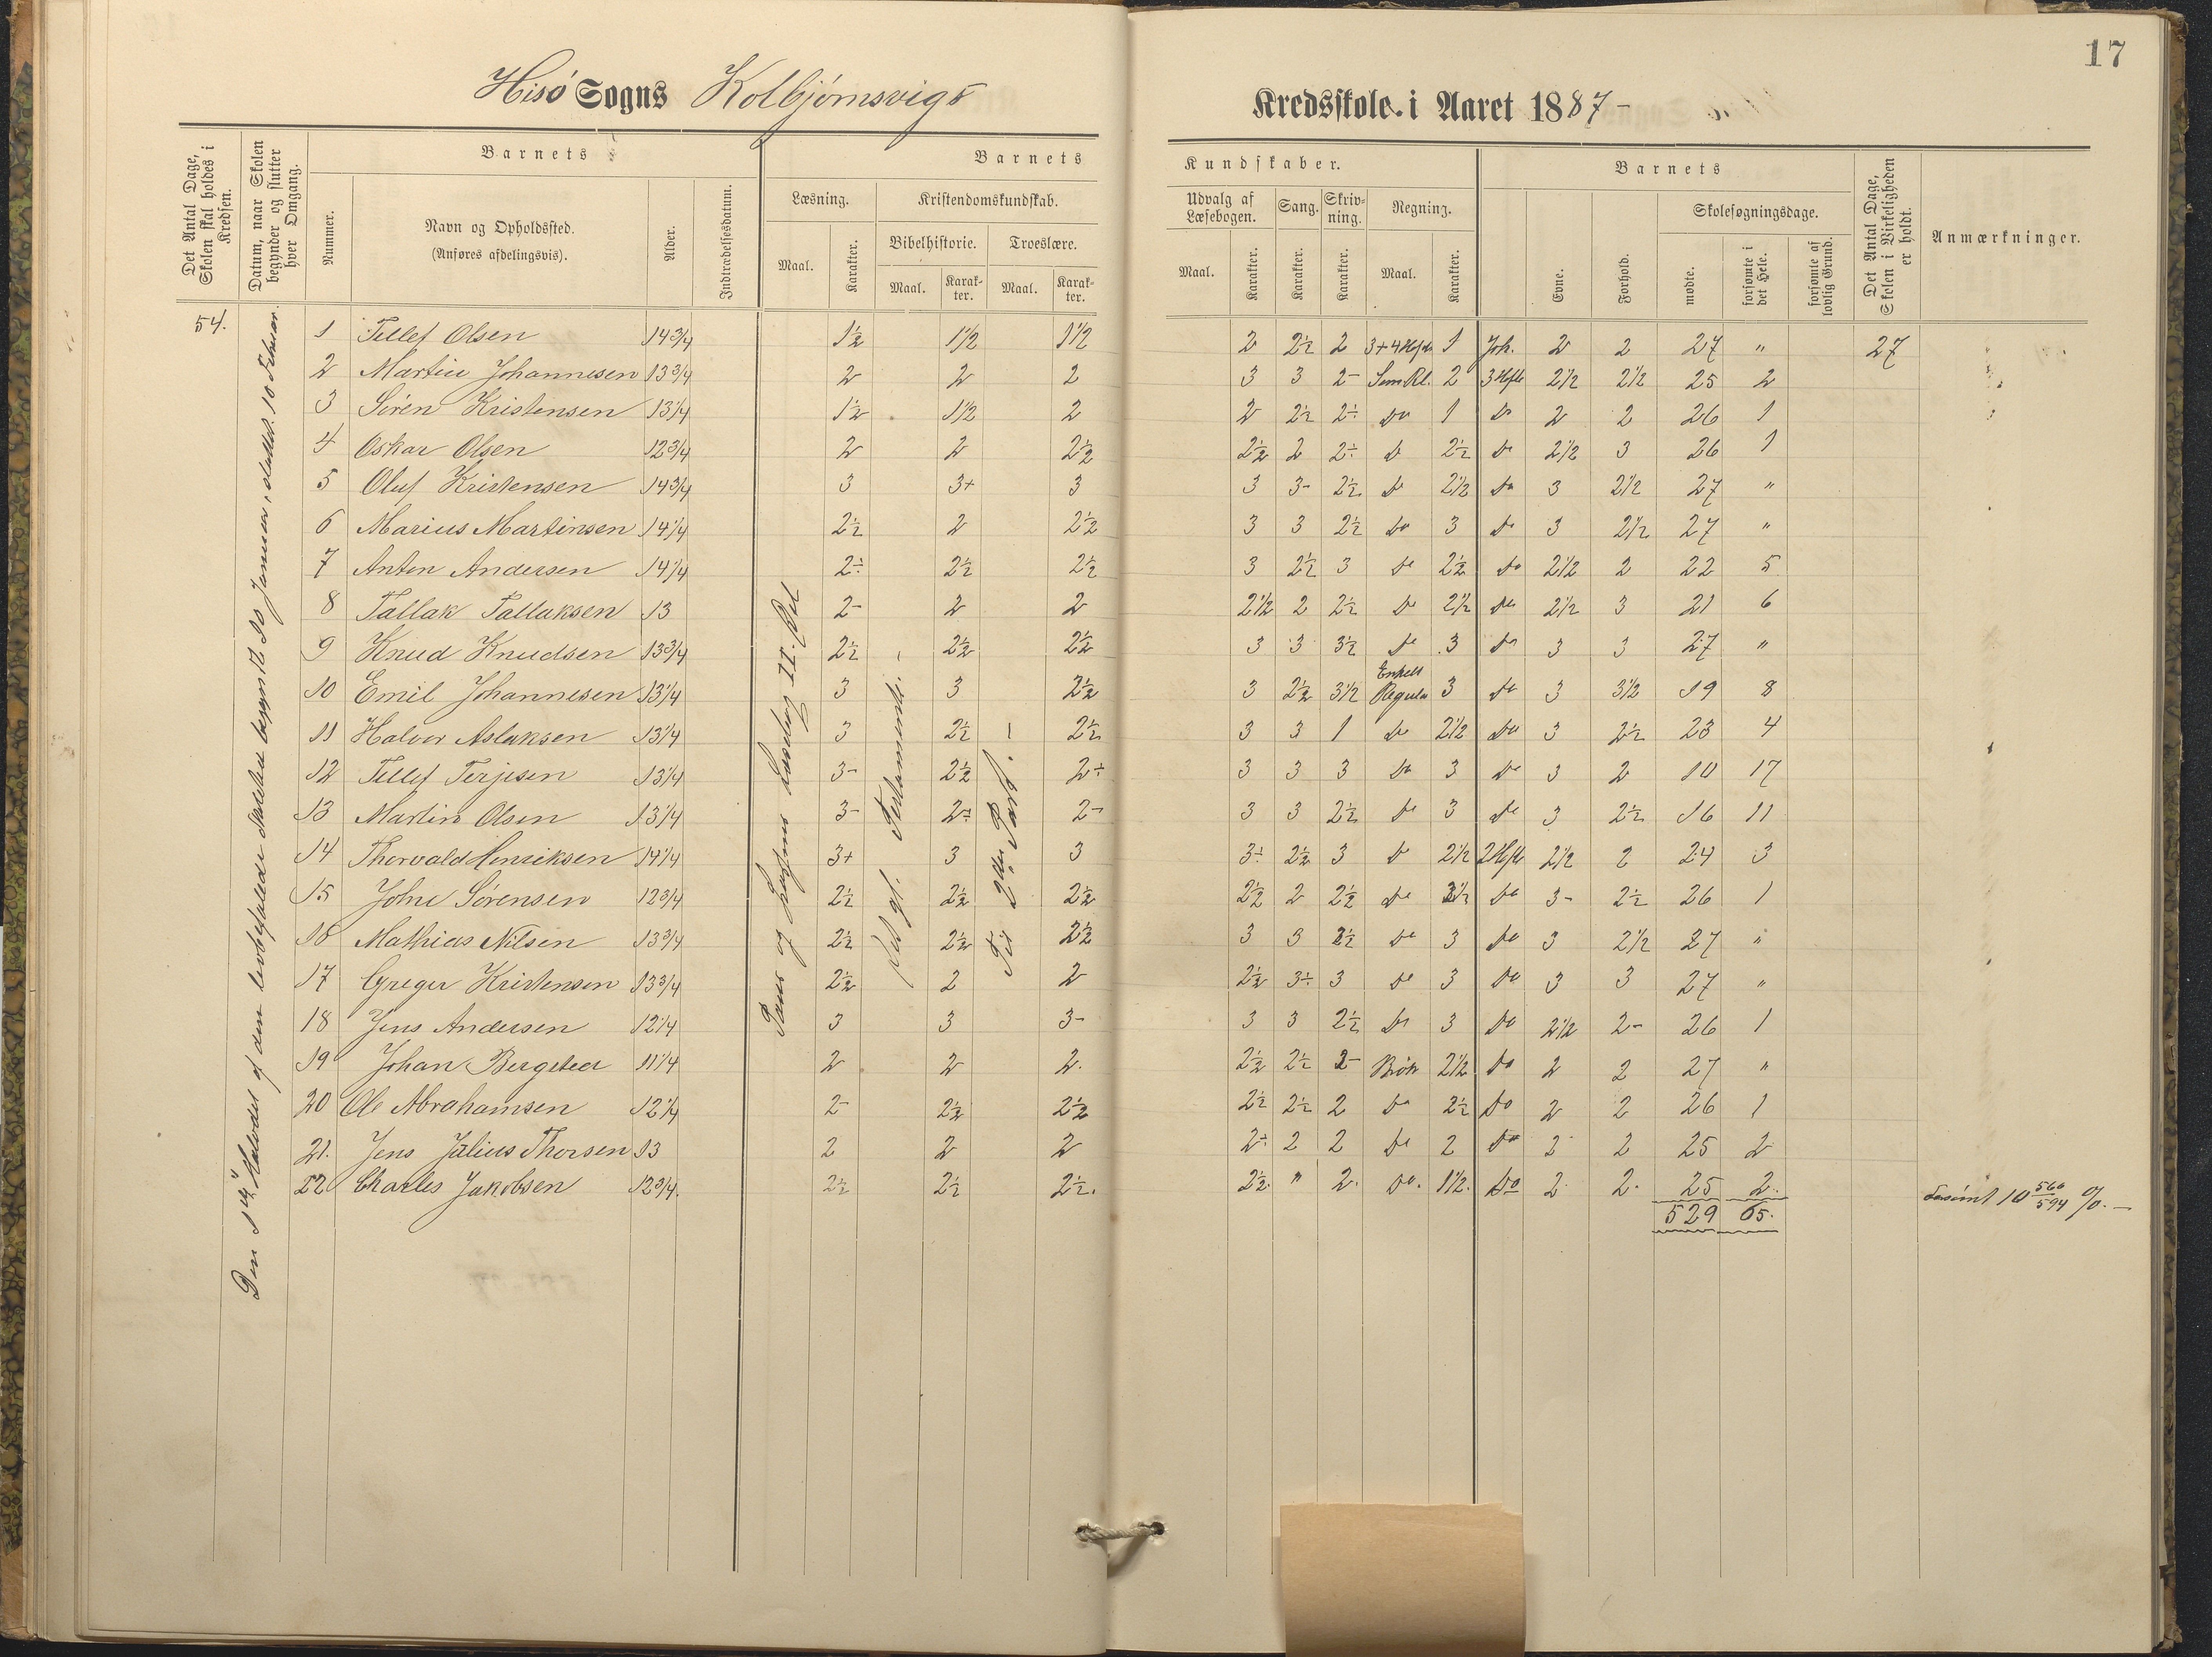 17
Hisö Sogns Kolbjörnsvigs Kredsskole i Aaret 1887-
Det Antal Dage, Skolen skal holdes i Kredsen.
Datum, naar Skolen begynder og slutter hver Omgang.
Barnets
Nummer.
Navn og Opholdssted.
(Anføres afdelingsvis).
Alder.
Indtrædelsesdatum.
Barnets Kundskaber.
Læsning.
Maal.
Karakter.
Kristendomskundskab.
Bibelhistorie.
Maal.
Karakter.
Troeslære.
Maal.
Karakter.
Udvalg af Læsebogen.
Maal.
Karakter.
Sang.
Karakter.
Skrivning.
Karakter.
Regning.
Maal.
Karakter.
Barnets
Evne.
Forhold.
Skolesøgningsdage.
mødte.
forsømte i det Hele.
forsømte af lovlig Grund.
Det Antal Dage, Skolen i Virkeligheden er holdt.
Anmærkninger.
54.
1 Tellef Olsen 14 3/4 1½ 1½ 1½ 2 2½ 2 3+4 1 2 2 27 " 27
2 Martin Johannesen 13 3/4 2 2 2 3 3 2- 2 3 2½ 2½ 25 2
3 Sören Kristensen 13 1/4 1½ 1½ 2 2 2½ 2÷ Do 1 Do 2 2 26 1
4 Oskar Olsen 12 3/4 2 2 2½ 2½ 2 2÷ Do 2½ Do 2½ 3 26 1
5 Oluf Kristensen 14 3/4 3 3+ 3 3 3- 2½ Do 2½ Do 3 2½ 27 "
6 Marius Martinsen 14 1/4 2½ 2 2½ 3 3 2½ Do 3 Do 3 2½ 27 "
7 Anton Andersen 14 1/4 2÷ 2½ 2½ 3 2½ 3 Do 2½ Do 2½ 2 22 5
8 Tallak Tallaksen 13 2- 2 2 2½ 2 2½ Do 2½ Do 2½ 3 21 6
9 Knud Knudsen 13 3/4 2½ 2½ 2½ 3 3 3½ Do 3 Do 3 3 27 "
10 Emil Johannesen 13 1/4 3 3 2½ 3 2½ 3½ Enkelt Regula 3 Do 3 3½ 19 8
11 Halvor Aslaksen 13 1/4 3 2½ 2½ 3 3 1 Do 2½ Do 3 2½ 23 4
12 Tellef Terjesen 13 1/4 3- 2½ 2÷ 3 3 3 Do 3 Do 3 2 10 17
13 Martin Olsen 13 1/4 3- 2÷ 2- 3 3 2½ Do 3 Do 3 2½ 16 11
14 Thorvald Henriksen 14 1/4 3+ 3 3 3÷ 2½ 3 Do 2½ 2 2½ 2 24 3
15 John Sörensen 12 3/4 2½ 2½ 2½ 2½ 2 2½ Do 3½ Do 3- 2½ 26 1
16 Mathias Nilsen 13 3/4 2½ 2½ 2½ 3 3 2½ Do 3 Do 3 2½ 27 "
17 Greger Kristensen 13 3/4 2½ 2 2 2½ 3÷ 3 Do 3 Do 3 3 27 "
18 Jens Andersen 12 1/4 3 3 3- 3 3 2½ Do 3 Do 2½ 2- 26 1
19 Johan Bergsted 11 1/4 2 2 2. 2½ 2½ 2- Brök 2½ Do 2 2 27 "
20 Ole Abrahamsen 12 1/4 2- 2½ 2½ 2½ 2½ 2 Do 2½ Do 2 2 26 1
21. Jens Julius Thorsen 13 2 2 2 2÷ 2 2 Do 2 Do 2 2 25 2
22 Charles Jakobsen 12 3/4. 2½ 2½ 2½. 2½. " 2. Do. 1½. Do 2. 2. 25 2.
529 65.
Forsömt 10 560/594 %.